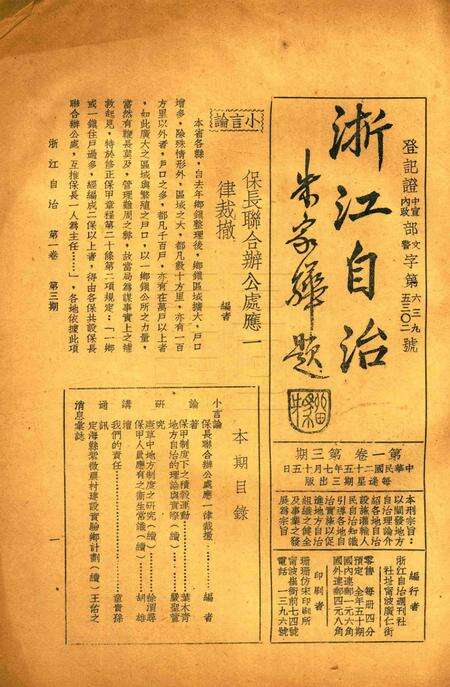 登記證 中宣部文字第六三九號
內政 警 五三〇二
浙江自治
朱家驊題
第一卷 第三期
中華民國二十五年七月十五日
每逢星期三出版
本刊宗旨：
以闡發地方
自治理論介
紹各地自治
設施灌輸人
民自治知識
引導各地自
治實施以促
進地方自治
組織之健全
及事業之發
展為宗旨
編行者
浙江自治週刊社
社址寧波廣仁街
零售 每冊四分
預定 全年五十期
國內連郵一元六角
國外連郵四元八角
印刷者
珊瑚仿宋印刷所
寧波崔衙前七四號
電話一三九六號
小言論
保長聯合辦公處應一
律裁撤
編者
本省各縣，自去年鄉鎮整理後，鄉鎮區域擴大，戶口
增多，除殊情形外，區域之大，都凡數十方里，亦有一百
方里以外者，戶口之多，都凡千百戶，亦有在萬戶以上者
，如此廣大之區域與繁殖之戶口，以一鄉鎮公所之力量，
當然有鞭長莫及，管理難周之弊，故當局為謀事實上之補
救起見，特於修正保甲章程第二十條第二項規定：「一鄉
或一鎮住戶過多，經編成二保以上者，得由各保共設保長
聯合辦公處，互推保長一人為主任……」，各地依據此項
浙江自治 第一卷 第三期
本期目錄
小言論
保長聯合辦公處應一律裁撤…………編者
論著
保甲制度下之積穀運動…………葉木青
地方自治的理論與實際（續）…………嚴聖萱
研究
憲草中地方制度之研究（續）…………徐渭尋
講壇
保甲人員應有之衛生常識（續）…………胡雄
我們的責任…………童貴孫
通訊
定海縣紫微農村建設實驗鄉計劃（續）王佑之
消息彙誌
一